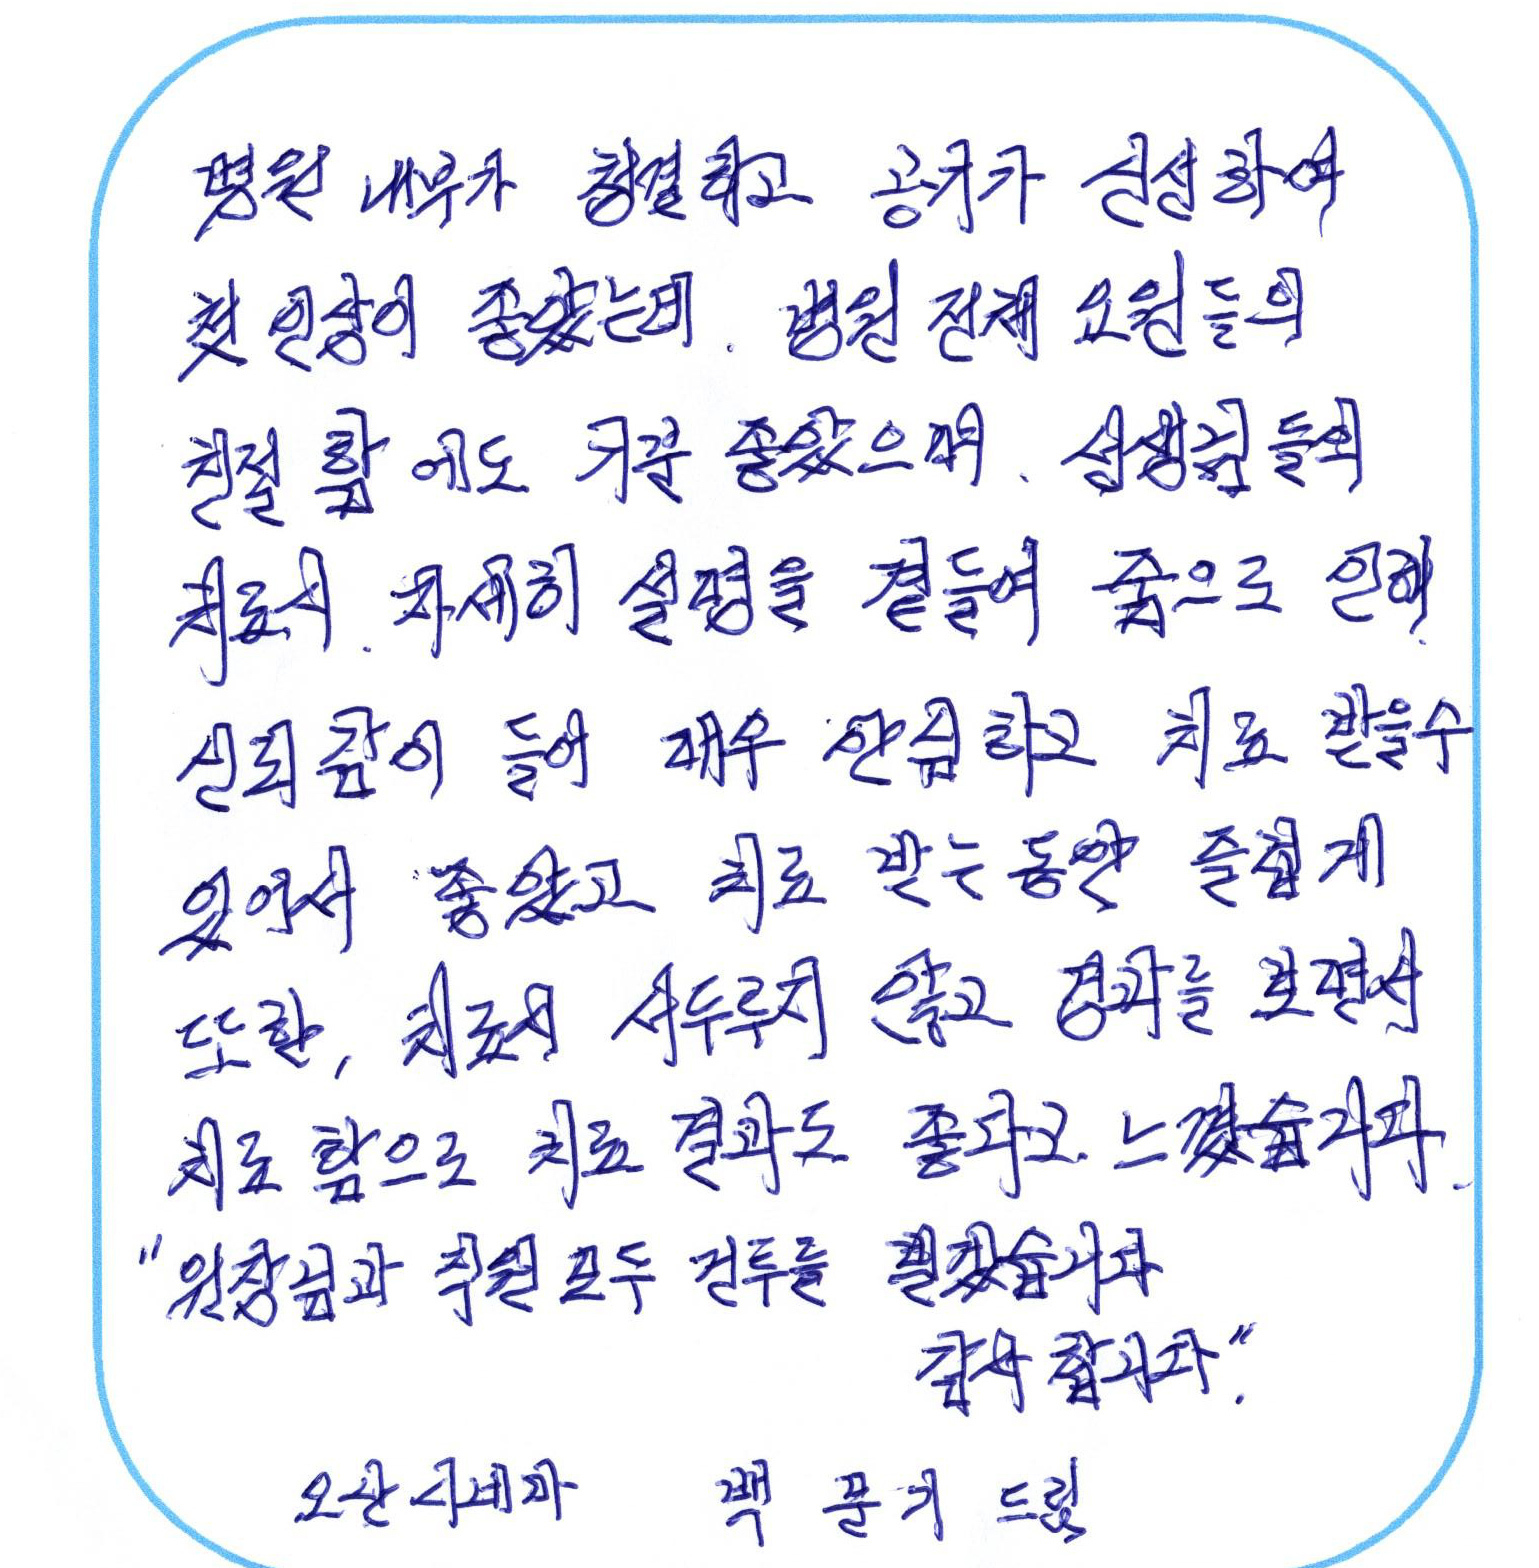 병원 내부가 청결하고 공기가 신선하여
첫 인상이 좋았는데. 병원 전체 요원들의
친절 함 에도 기분 좋았으며. 선생님들의
치료시. 자세히 설명을 곁들여 줌으로 인해
신뢰감이 들어 매우 안심하고 치료 받을수
있어서 좋았고 치료 받는동안 즐겁게
또한, 치료시 서두루지 않고 경과를 보면서
치료 함으로 치료 결과도 좋다고 느꼈습니다.
"원장님과 직원 모두 건투를 빌겠습니다
감사 합니다".
오산시 백 문기 드림